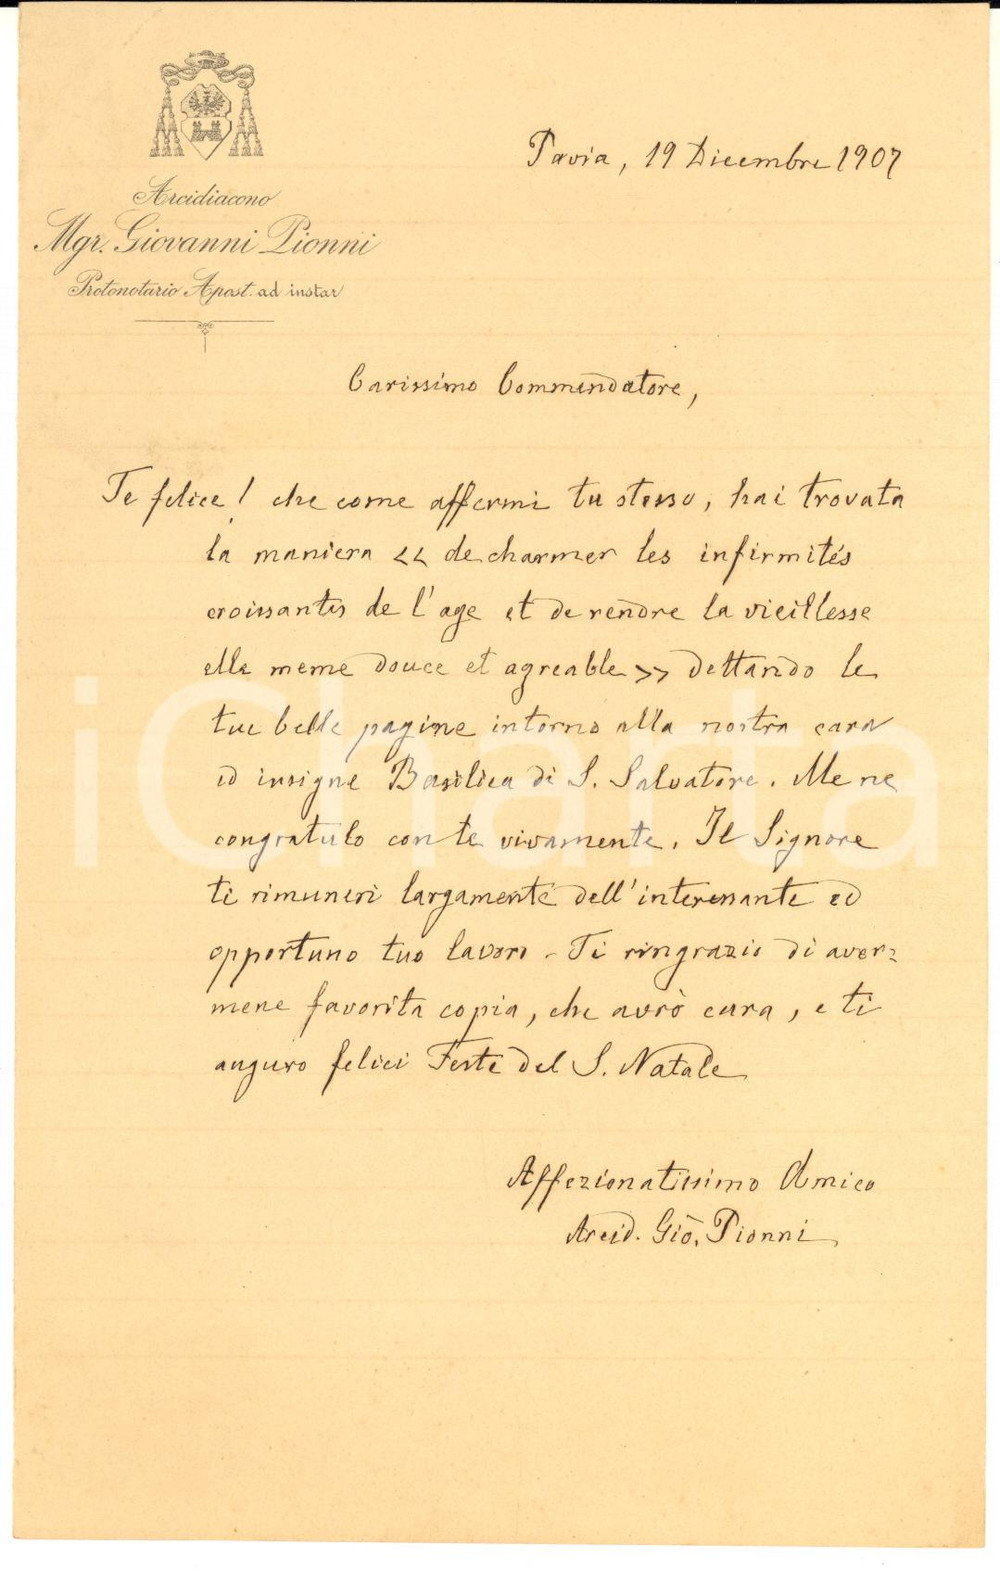 Arcidiacono
Mgr. Giovanni Pionni
Protonotario Apost. ad instar
Pavia, 19 Dicembre 1907
Carissimo Commendatore,
Te felice! che come affermi tu stesso, hai trovata
la maniera << de charmer les infirmités
croissantes de l'age et de rendre la vieillesse
elle meme douce et agreable >> dettando le
tue belle pagine intorno alla nostra cara
ed insigne Basilica di S. Salvatore. Me ne
congratulo con te vivamente. Il Signore
ti rimuneri largamente dell'interessante ed
opportuno tuo lavoro - Ti ringrazio di aver=
mene favorita copia, che avrò cara, e ti
auguro felici Feste del S. Natale
Affezionatissimo Amico
Arcid. Giõ. Pionni
iCharta